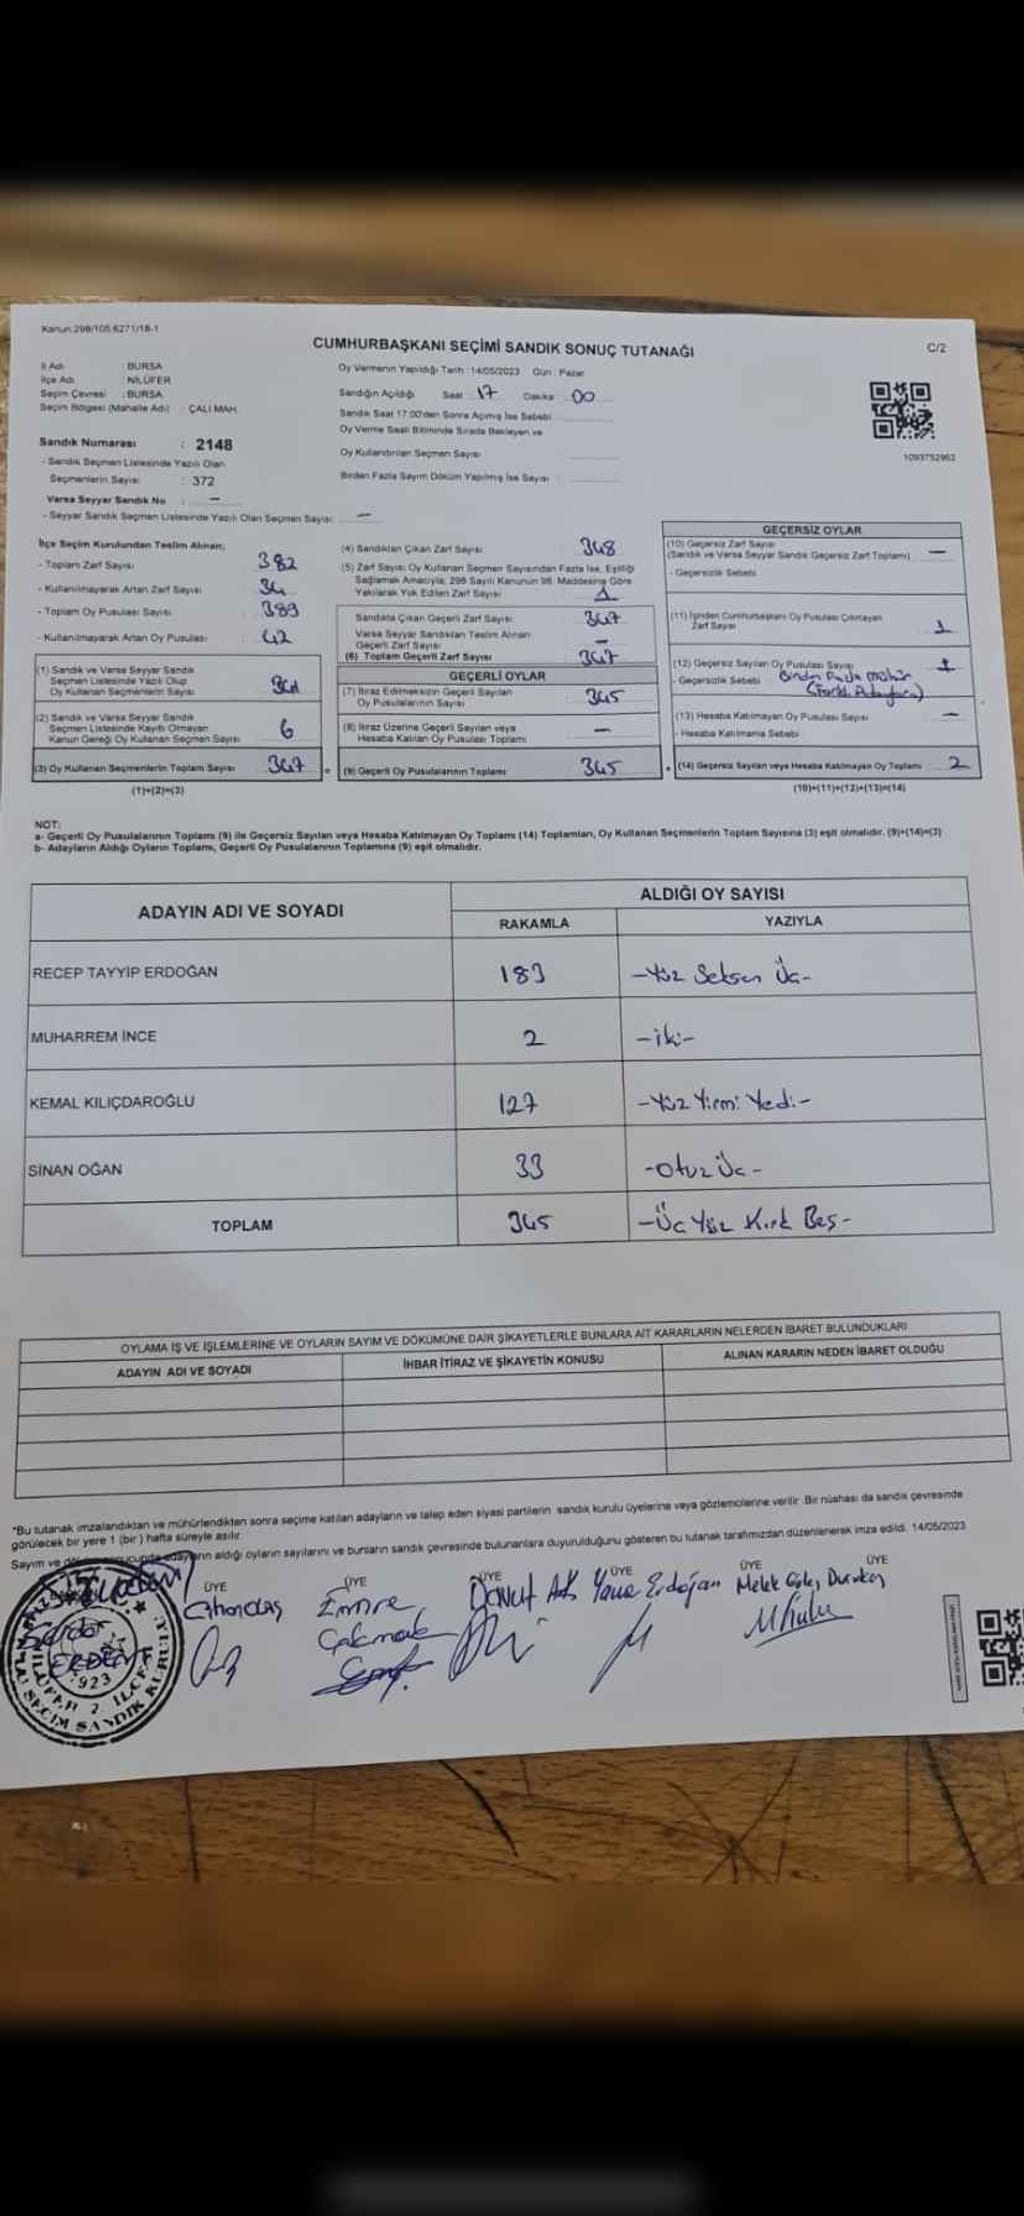 Kanun:298/105.6271/18-1
CUMHURBAŞKANI SEÇİMİ SANDIK SONUÇ TUTANAĞI
C/2
İl Adı : BURSA
İlçe Adı : NİLÜFER
Seçim Çevresi : BURSA
Seçim Bölgesi (Mahalle Adı) : ÇALI MAH.
Sandık Numarası : 2148
- Sandık Seçmen Listesinde Yazılı Olan
Seçmenlerin Sayısı : 372
Varsa Seyyar Sandık No : -
- Seyyar Sandık Seçmen Listesinde Yazılı Olan Seçmen Sayısı: -
Oy Vermenin Yapıldığı Tarih : 14/05/2023 Gün : Pazar
Sandığın Açıldığı Saat 17 Dakika 00
Sandık Saat 17:00'den Sonra Açılmış İse Sebebi
Oy Verme Saati Bitiminde Sırada Bekleyen ve
Oy Kullandırılan Seçmen Sayısı
Birden Fazla Sayım Döküm Yapılmış İse Sayısı
1093752962
İlçe Seçim Kurulundan Teslim Alınan;
- Toplam Zarf Sayısı : 382
- Kullanılmayarak Artan Zarf Sayısı : 34
- Toplam Oy Pusulası Sayısı : 389
- Kullanılmayarak Artan Oy Pusulası : 42
(1) Sandık ve Varsa Seyyar Sandık
Seçmen Listesinde Yazılı Olup
Oy Kullanan Seçmenlerin Sayısı 341
(2) Sandık ve Varsa Seyyar Sandık
Seçmen Listesinde Kayıtlı Olmayan
Kanun Gereği Oy Kullanan Seçmen Sayısı 6
(3) Oy Kullanan Seçmenlerin Toplam Sayısı 347
(1)+(2)=(3)
(4) Sandıktan Çıkan Zarf Sayısı 348
(5) Zarf Sayısı Oy Kullanan Seçmen Sayısından Fazla İse, Eşitliği
Sağlamak Amacıyla; 298 Sayılı Kanunun 98. Maddesine Göre
Yakılarak Yok Edilen Zarf Sayısı 1
Sandıkta Çıkan Geçerli Zarf Sayısı 347
Varsa Seyyar Sandıktan Teslim Alınan
Geçerli Zarf Sayısı -
(6) Toplam Geçerli Zarf Sayısı 347
GEÇERLİ OYLAR
(7) İtiraz Edilmeksizin Geçerli Sayılan
Oy Pusulalarının Sayısı 345
(8) İtiraz Üzerine Geçerli Sayılan veya
Hesaba Katılan Oy Pusulası Toplamı -
= (9) Geçerli Oy Pusulalarının Toplamı 345
GEÇERSİZ OYLAR
(10) Geçersiz Zarf Sayısı
(Sandık ve Varsa Seyyar Sandık Geçersiz Zarf Toplamı) -
- Geçersizlik Sebebi
(11) İçinden Cumhurbaşkanı Oy Pusulası Çıkmayan
Zarf Sayısı 1
(12) Geçersiz Sayılan Oy Pusulası Sayısı 1
- Geçersizlik Sebebi Birden Fazla mühür
(Farklı Adaylara)
(13) Hesaba Katılmayan Oy Pusulası Sayısı -
- Hesaba Katılmama Sebebi
+ (14) Geçersiz Sayılan veya Hesaba Katılmayan Oy Toplamı 2
(10)+(11)+(12)+(13)=(14)
NOT:
a- Geçerli Oy Pusulalarının Toplamı (9) ile Geçersiz Sayılan veya Hesaba Katılmayan Oy Toplamı (14) Toplamları, Oy Kullanan Seçmenlerin Toplam Sayısına (3) eşit olmalıdır. (9)+(14)=(3)
b- Adayların Aldığı Oyların Toplamı, Geçerli Oy Pusulalarının Toplamına (9) eşit olmalıdır.
ADAYIN ADI VE SOYADI
ALDIĞI OY SAYISI
RAKAMLA YAZIYLA
RECEP TAYYİP ERDOĞAN 183 -Yüz Seksen Üç-
MUHARREM İNCE 2 -iki-
KEMAL KILIÇDAROĞLU 127 -Yüz Yirmi Yedi-
SİNAN OĞAN 33 -Otuz Üç-
TOPLAM 345 -Üç Yüz Kırk Beş-
OYLAMA İŞ VE İŞLEMLERİNE VE OYLARIN SAYIM VE DÖKÜMÜNE DAİR ŞİKAYETLERLE BUNLARA AİT KARARLARIN NELERDEN İBARET BULUNDUKLARI
ADAYIN ADI VE SOYADI İHBAR İTİRAZ VE ŞİKAYETİN KONUSU ALINAN KARARIN NEDEN İBARET OLDUĞU
*Bu tutanak imzalandıktan ve mühürlendikten sonra seçime katılan adayların ve talep eden siyasi partilerin sandık kurulu üyelerine veya gözlemcilerine verilir. Bir nüshası da sandık çevresinde
görülecek bir yere 1 (bir) hafta süreyle asılır.
Sayım ve adayların aldığı oyların sayılarını ve bunların sandık çevresinde bulunanlara duyurulduğunu gösteren bu tutanak tarafımızdan düzenlenerek imza edildi. 14/05/2023
ÜYE ÜYE ÜYE ÜYE ÜYE ÜYE
Emre
Çakmak
Davut
Erdoğan
Melek
Serdar
ERDEM
923
NİLÜFER 2. İLÇE
SEÇİM SANDIK KURULU